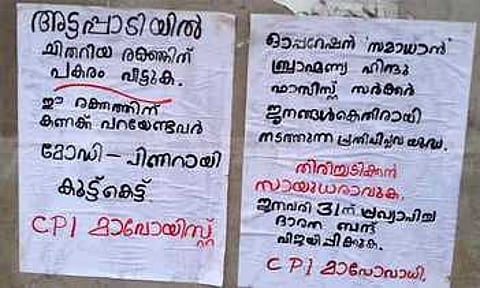 അട്ടപ്പാടിയിൽ
ചിതറിയ രക്തത്തിന്
പകരം വീട്ടുക.
ഈ രക്തത്തിന്
കണക്ക് പറയേണ്ടവർ
മോഡി - പിണറായി
കൂട്ട്കെട്ട്.
CPI മാവോയിസ്റ്റ്
ഓപ്പറേഷൻ 'സമാധാൻ'
ബ്രാഹ്മണ്യ ഹിന്ദു
ഫാസിസ്റ്റ് സർക്കാർ
ജനങ്ങൾക്കെതിരായി
നടത്തുന്ന പ്രതിവിപ്ലവ യുദ്ധം.
തിരിച്ചടിക്കാൻ
സായുധരാവുക.
ജനുവരി 31ന് പ്രഖ്യാപിച്ച
ഭാരത ബന്ദ്
വിജയിപ്പിക്കുക.
CPI മാവോവാദി.